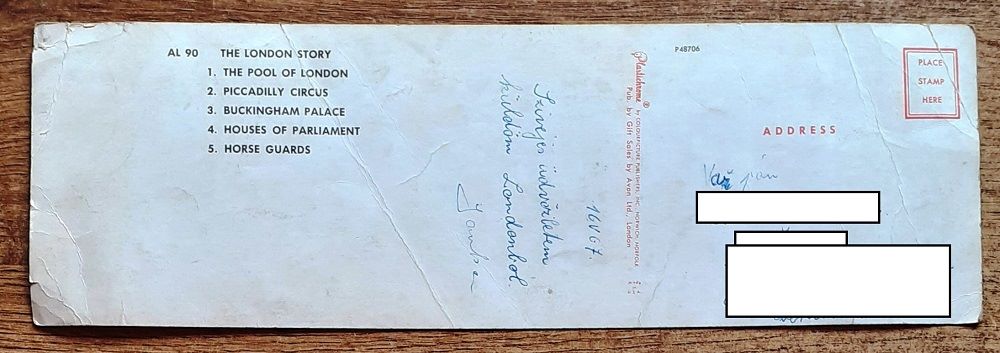 AL 90 THE LONDON STORY
1. THE POOL OF LONDON
2. PICCADILLY CIRCUS
3. BUCKINGHAM PALACE
4. HOUSES OF PARLIAMENT
5. HORSE GUARDS
16 V 67.
Szivéjes üdvözletem
küldöm Londonból.
Plastichrome ® by COLOURPICTURE PUBLISHERS, INC. NORWICH NORFOLK
Pub. by Gift Sales by Avon Ltd., London
P48706
PLACE
STAMP
HERE
ADDRESS
pán